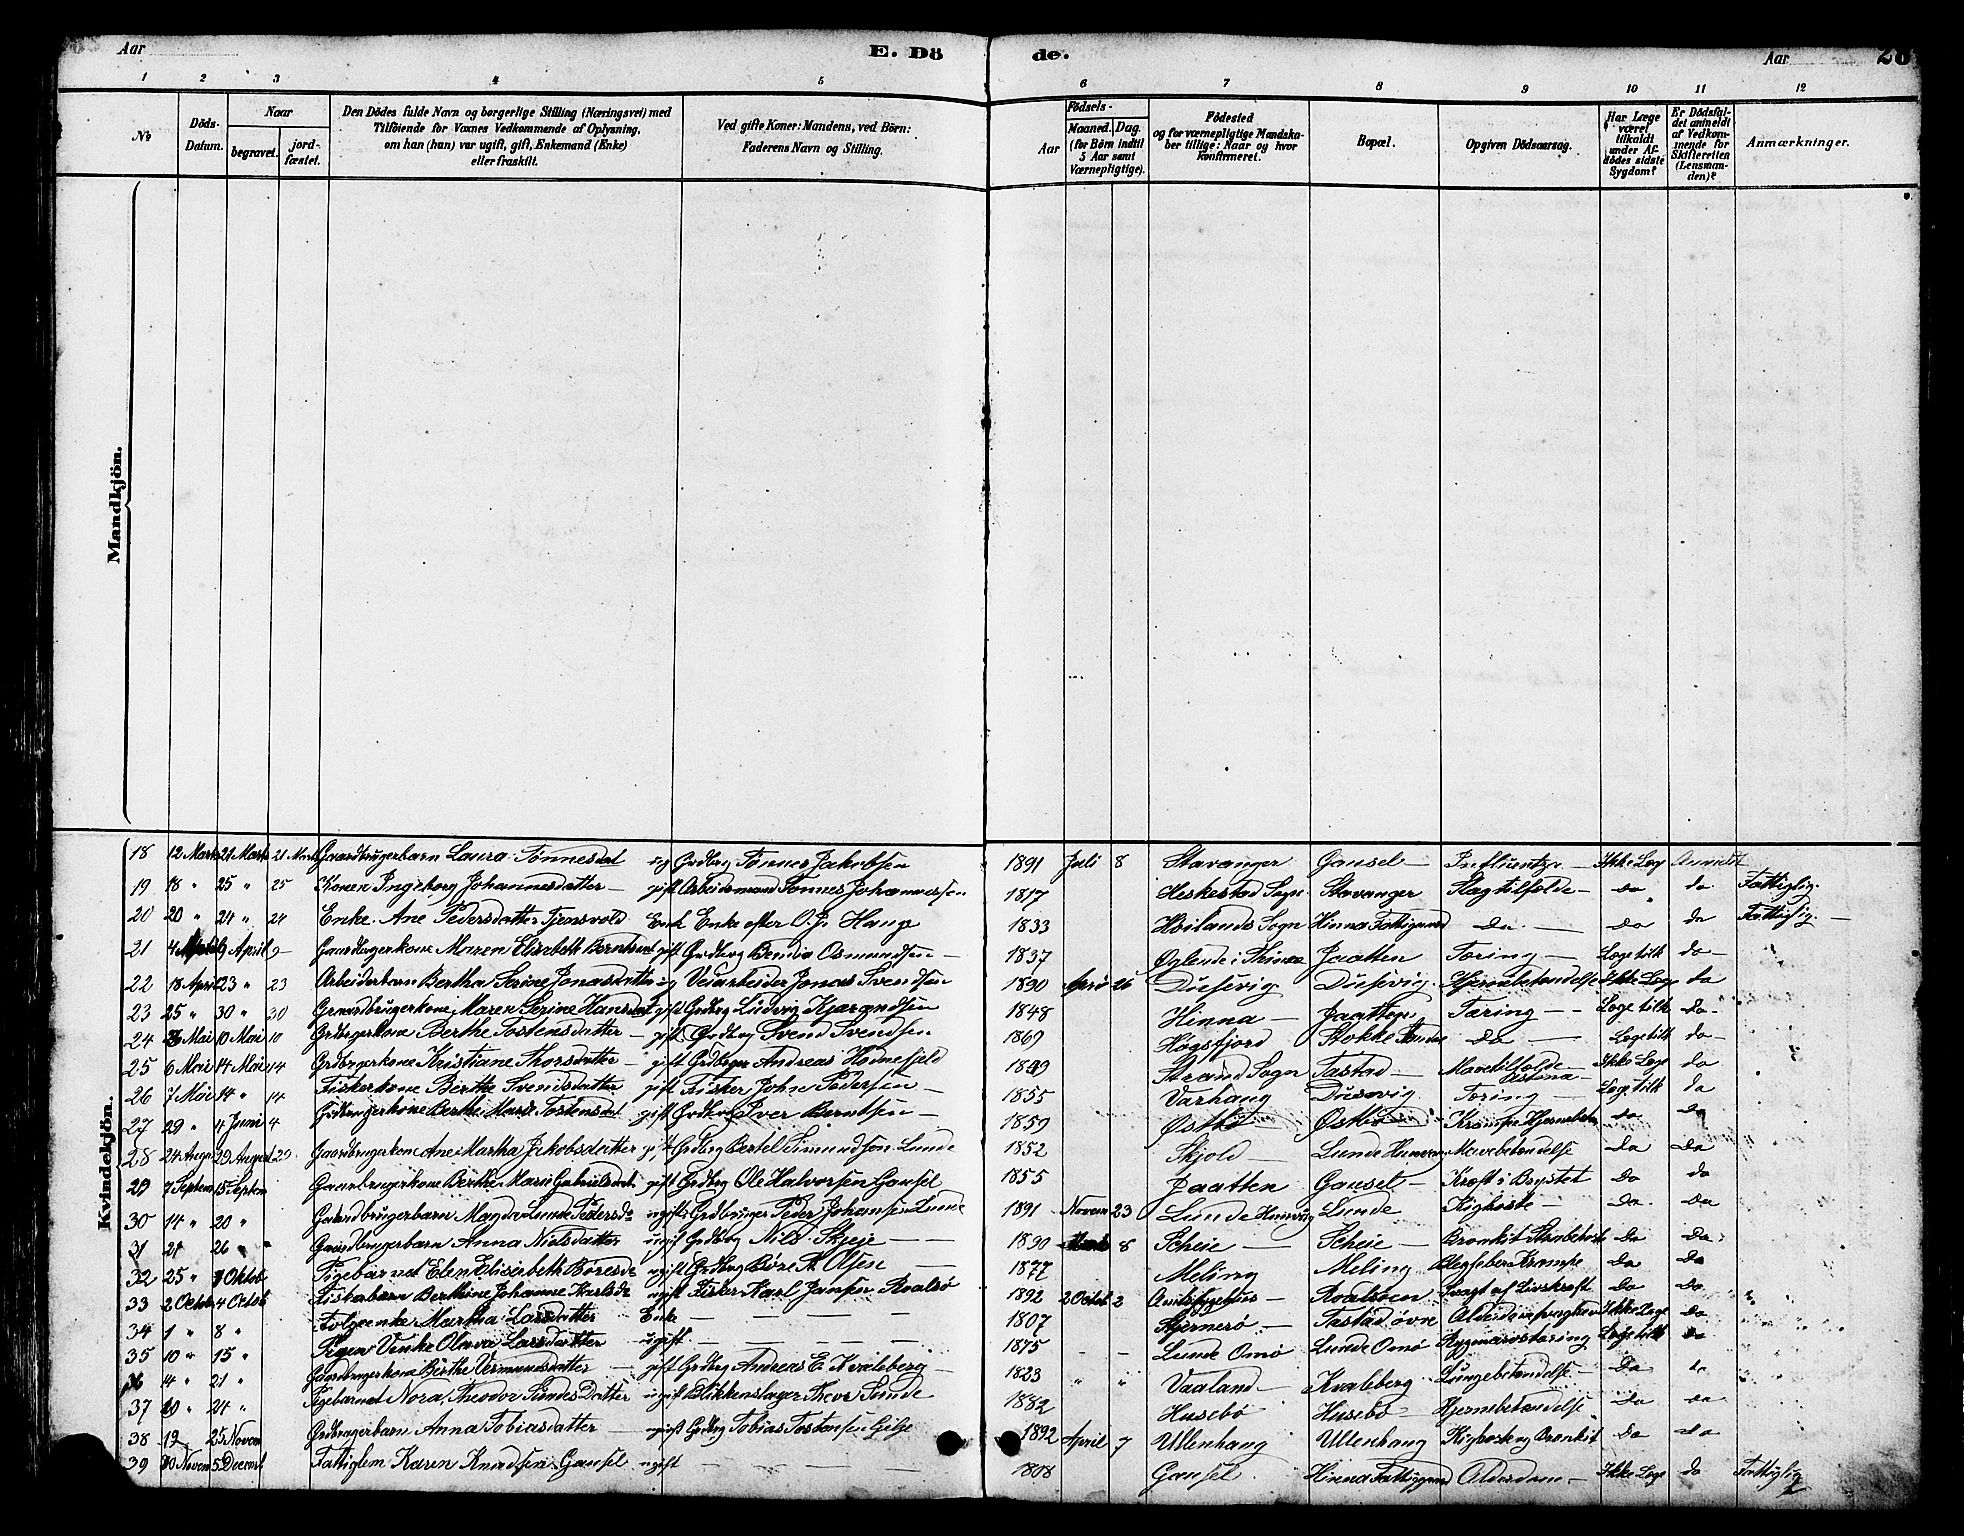 Aar
E. Dö
de.
Aar
1 2 3 4 5 6 7 8 9 10 11 12
No
Döds-Datum.
Naar
begravet.
jord-fæstet.
Den Dödes fulde Navn og borgerlige Stilling (Næringsvei) med
Tilföiende for Voxnes Vedkommende af Oplysning,
om han (hun) var ugift, gift, Enkemand (Enke)
eller fraskilt.
Ved gifte Koner: Mandens, ved Börn:
Faderens Navn og Stilling.
Födsels-
Aar
Maaned. Dag.
(for Börn indtil
5 Aar samt
Værnepligtige).
Födested
og for værnepligtige Mandska-
ber tillige: Naar og hvor
konfirmeret.
Bopæl.
Opgiven Dödsaarsag.
Har Læge
været
tilkaldt
under Af-
dödes sidste
Sygdom?
Er Dödsfal-
det anmeldt
af Vedkom-
mende for
Skifteretten
(Lensman-
den)?
Anmærkninger.
Mandkjön.
Kvindekjön.
18 12 Marts 21 Marts 21 Marts Gaardbrugerbarn Laura Tønnesdat ug Grdbrg Tønnes Jakobsen 1891 Juli 8 Stavanger Gausel Influentza Ikke Læg Anmeldt
19 18 " 25 " 25 Konen Ingeborg Johannesdatter gift Arbeidsmand Tønnes Johannessen 1817 Heskestad Sogn Stavanger Slagtilfælde da da Fattiglig
20 20 " 24 " 24 Enke Ane Pedersdatter Tjensvold Enk Enke efter O. J. Hauge 1833 Høilands Sogn Hinna Fattiggaard da da da Fattiglig
21 4 April 9 April 9 Gaardbrugerkone Maren Elisabeth Berntsdat gift Grdbrg Osmundsen 1837 Jaatten Tæring Læge tilk da
22 18 April 23 " 23 Arbeiderbarn Bertha Serine Jonasdatter ug Veiarbeider Jonas Svendsen 1890 April 26 Dusevig Dusevig Hjernebetændelse Ikke Læge da
23 25 " 30 " 30 Gaardbrugerkone Maren Serine Hansdat gift Grdbrg Ludvig Kjærandsen 1848 Hinna Jaatten Tæring Læge tilk da
24 Mai 10 Mai 10 Grdbrgerkone Berthe Tostensdatter gift Grdbrg Svend Svendsen 1869 Høgsfjord Stokke da Læge tilk da
25 6 Mai 14 Mai 14 Grdbrgerkone Kristiane Thorsdatter gift Grdbrger Andreas Hodnefjeld Strand Sogn Tastad Ikke Læge da
26 7 Mai 14 " 14 Fiskerkone Berthe Svendsdatter gift Fisker John Pedersen 1855 Varhaug Dusevig Tæring Læg tilk da
27 29 " 4 Juni 4 Grdbrugerkone Berthe Marie Tostensdat gift Grdbrg Iver Berntsen 1859 Østbø Østbø Krampe Hjernebetæn da da
28 24 Aug 29 August 29 Gaardbrugerkone Ane Martha Jakobsdatter gift Grdbrg Bertel Simundsen Lunde 1852 Skjold Lunde Mavebetændelse da da
29 7 Septem 15 Septem Gaardbrugerkone Berthe Marie Gabrielsdat gift Grdbrg Ole Halvorsen Gausel 1855 Jaatten Gausel Kræft i Brystet da da
30 14 " 20 " Gaardbrugerbarn Magda Lunde Pedersda ugift Grdbruger Peder Johansen Lunde 1891 Novem 23 Lunde Lunde Kighoste da da
31 21 26 " Gaardbrugerbarn Anna Nielsdatter ugift Grdbrg Nils Skeie 1890 8 Scheie Scheie Bronkit da da
32 25 " 1 Oktob Pigebarnet Elen Elisabeth Børesda ugift Grdbrg Børe Olsen 1877 Meling Meling Krampe da da
33 2 Octob 4 Octob Fiskerbarn Berthine Johanne Karlsda ugift Fisker Karl Jansen Kvalsø 1892 2 Octob 2 Svagt af Livskraft da da
34 1 " 8 " Martha Larsdatter Enke 1807 Stjernerø Tastad øvre Ikke Læge da
35 10 " 15 " Pigen Vinke Olava Larsdatter ugift 1875 Lunde Omø Lunde Omø Rygmarvstæring Læge tilk da
36 14 " 21 " Gaardbrugerkone Berthe Vermundsdatter gift Grdbrg Andreas E. Kvaleberg 1823 Vaaland Kvaleberg Lungebetændelse da da
37 20 " 24 " Pigebarnet Nora Theodor Sundes Datter ugift Blikkenslager Theor Sunde 1882 Husebø Husebø Hjernebetændelse da da
38 19 25 Novem Grdbrugerbarn Anna Tobiasdatter ugift Grdbrg Tobias Tostensen Gilje 1892 April 7 Ullenhaug Ullenhaug Kighoste og Bronkit da da
39 30 Novem 5 Decemb Fattiglem Karen Knudsen Gausel ugift 1808 Gausel Hinna Fattiggaard Alderdom Ikke Læge da Fattiglig